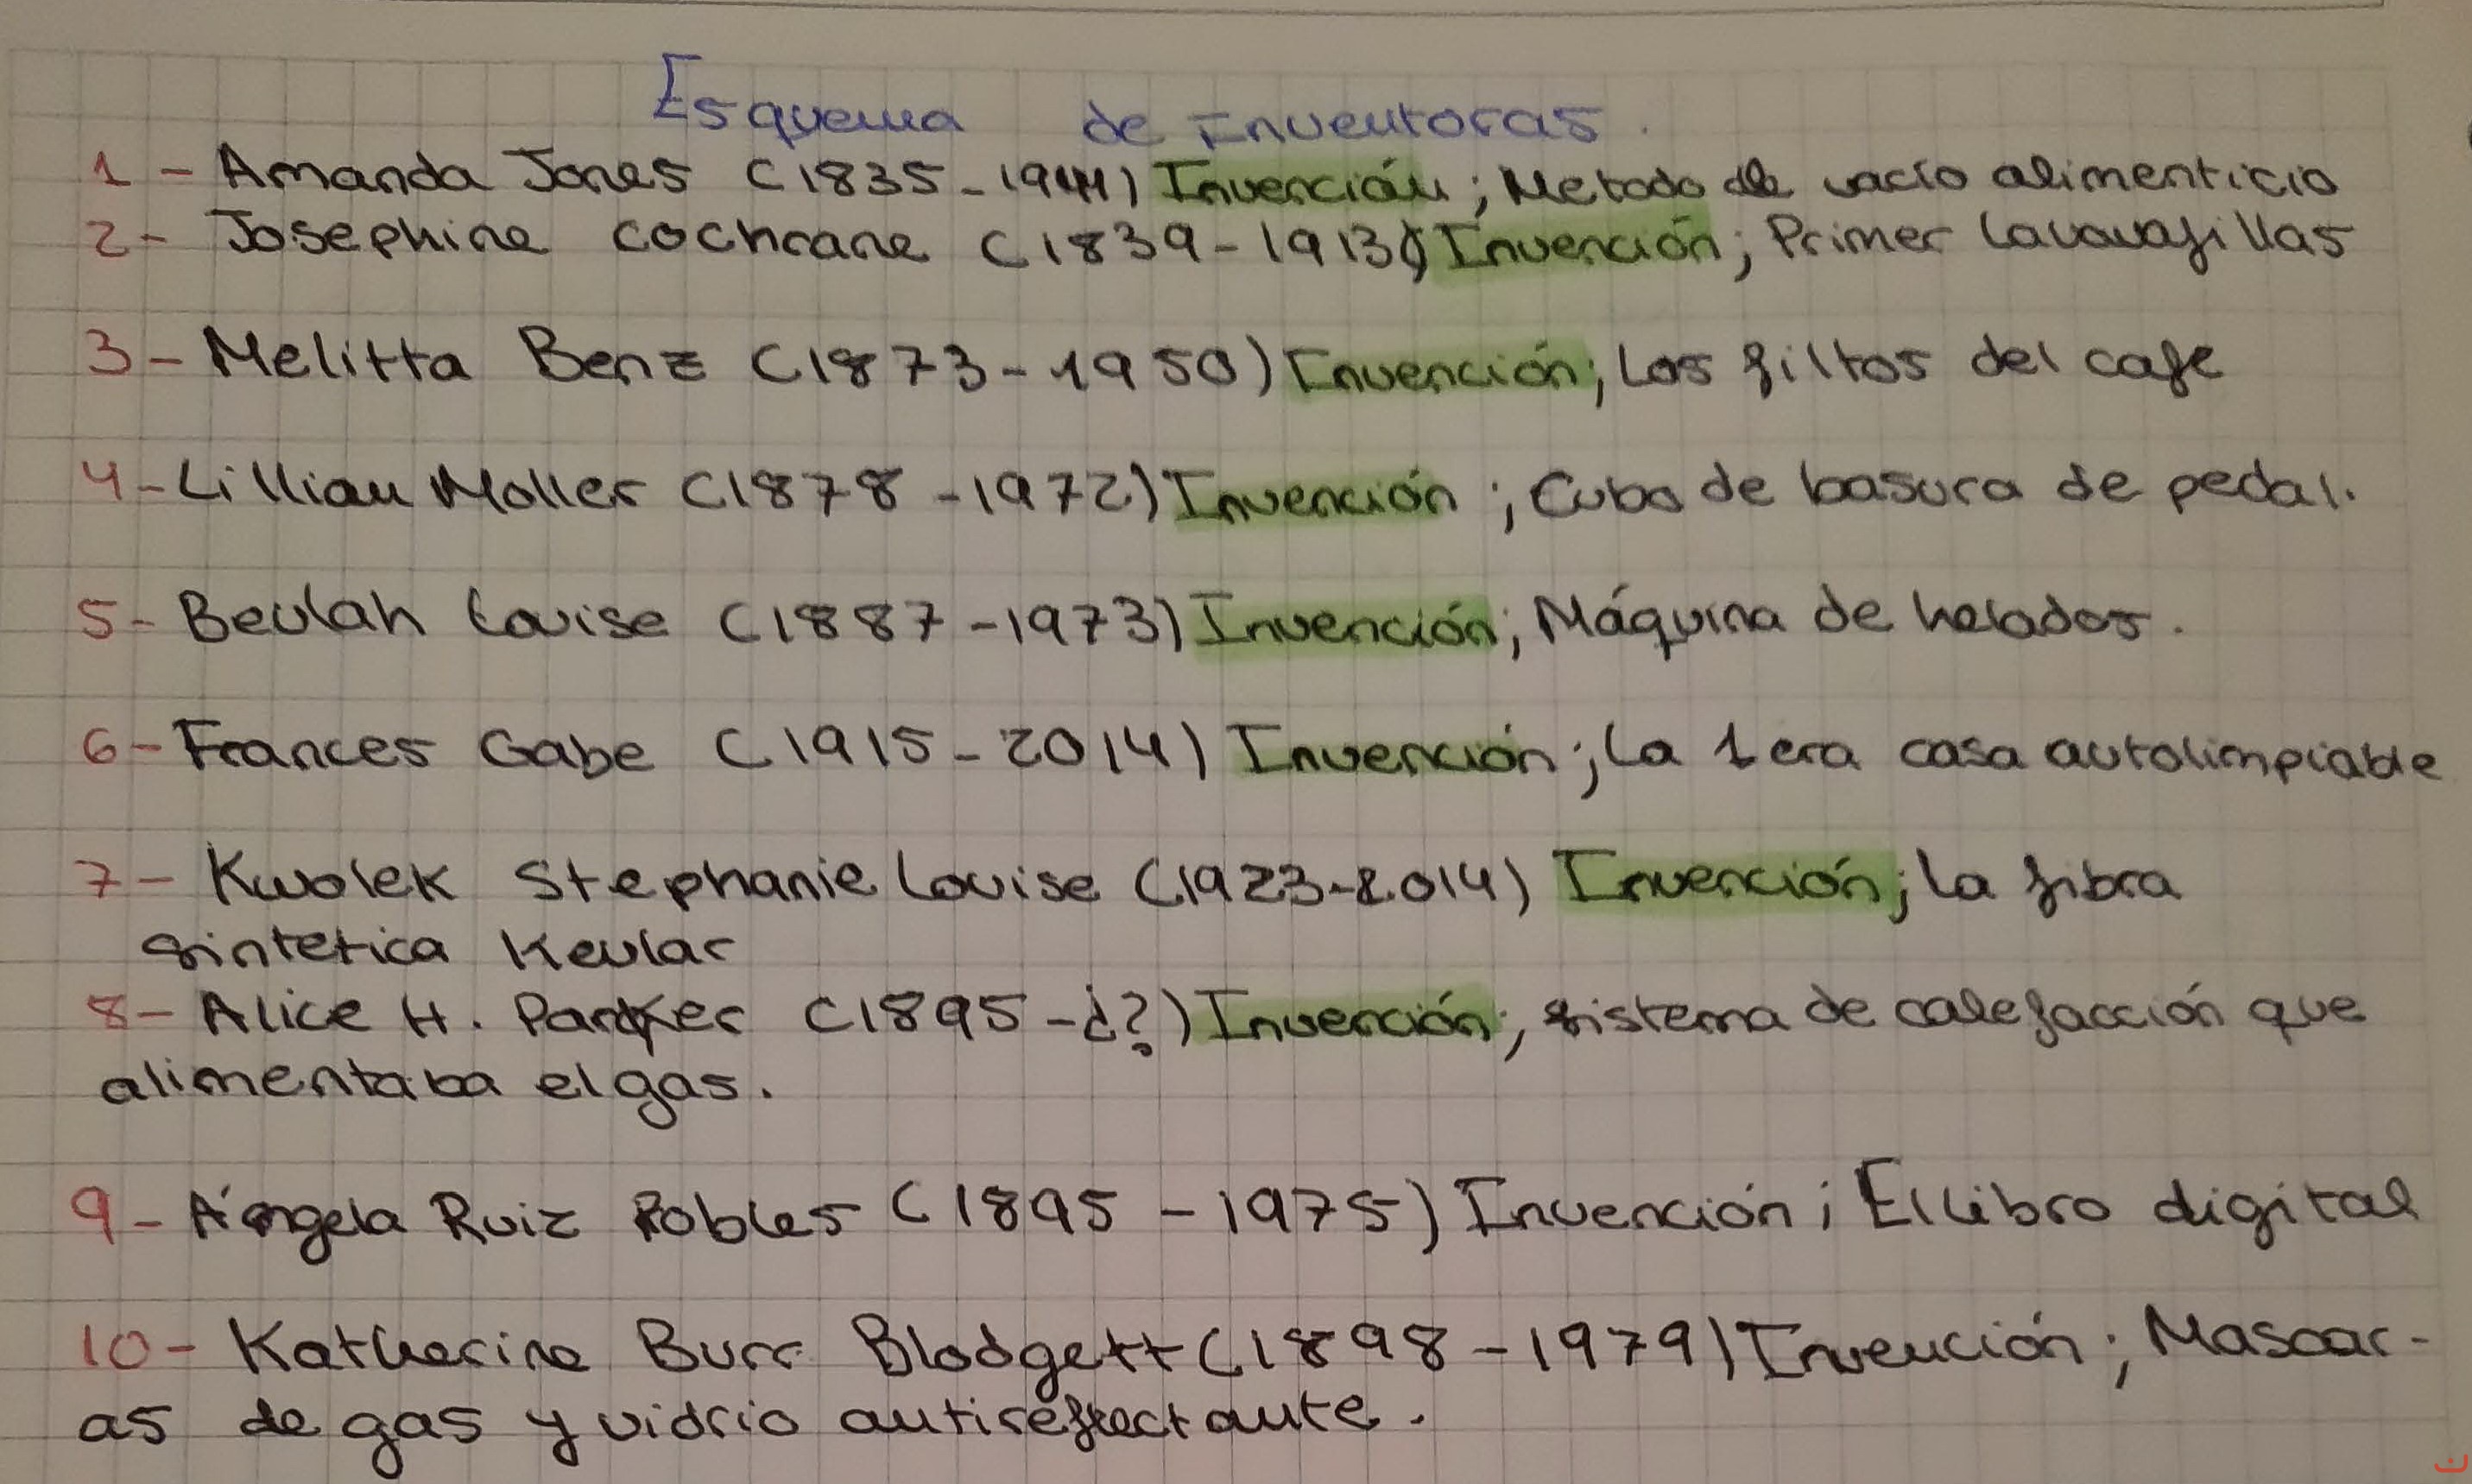 Esquema de Inventoras.
1 - Amanda Jones (1835-1914) Invención; Metodo de vacío alimenticio
2- Josephine Cochrane (1839-1913) Invención; Primer Lavavajillas
3- Melitta Benz (1873-1950) Invención; Los filtos del cafe
4- Lillian Moller (1878-1972) Invención; Cubo de basura de pedal.
5- Beulah Louise (1887-1973) Invención; Máquina de helados.
6- Frances Gabe (1915-2014) Invención; La 1era casa autolimpiable
7- Kwolek Stephanie Louise (1923-2014) Invención; La fibra
sintetica Kevlar
8- Alice H. Parker (1895-¿?) Invención; sistema de calefacción que
alimentaba el gas.
9- Ángela Ruiz Robles (1895-1975) Invención; El libro digital
10- Katherine Burr Blodgett (1898-1979) Invención; Mascar-
as de gas y vidrio antireflectante.